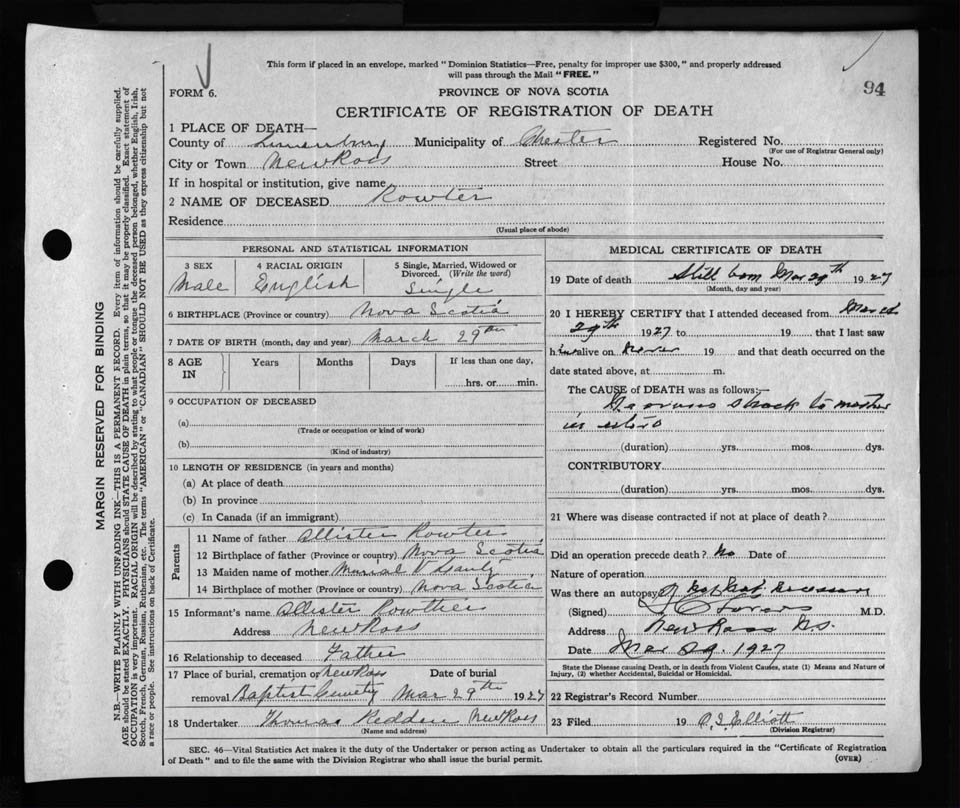 This form if placed in an envelope, marked "Dominion Statistics—Free, penalty for improper use $300," and properly addressed
will pass through the Mail "FREE."
94
FORM 6.
PROVINCE OF NOVA SCOTIA
CERTIFICATE OF REGISTRATION OF DEATH
1 PLACE OF DEATH—
County of Lunenburg Municipality of Chester Registered No.
(For use of Registrar General only)
City or Town New Ross Street House No.
If in hospital or institution, give name
2 NAME OF DECEASED Rowter
Residence
(Usual place of abode)
PERSONAL AND STATISTICAL INFORMATION
3 SEX 4 RACIAL ORIGIN 5 Single, Married, Widowed or
Divorced. (Write the word)
Male English Single
6 BIRTHPLACE (Province or country) Nova Scotia
7 DATE OF BIRTH (month, day and year) March 29th
8 AGE IN Years Months Days If less than one day,
hrs. or min.
9 OCCUPATION OF DECEASED
(a)
(Trade or occupation or kind of work)
(b)
(Kind of industry)
10 LENGTH OF RESIDENCE (in years and months)
(a) At place of death
(b) In province
(c) In Canada (if an immigrant)
Parents
11 Name of father Allister Rowter
12 Birthplace of father (Province or country) Nova Scotia
13 Maiden name of mother V
14 Birthplace of mother (Province or country) Nova Scotia
15 Informant's name Allister Rowther
Address New Ross
16 Relationship to deceased Father
17 Place of burial, cremation or New Ross Date of burial
removal Baptist Cemetery Mar 29th 1927
18 Undertaker Thomas Redden New Ross
(Name and address)
MEDICAL CERTIFICATE OF DEATH
19 Date of death Still born Mar 29th 1927
(Month, day and year)
20 I HEREBY CERTIFY that I attended deceased from March
29th 1927 to 19 that I last saw
h im alive on never 19 and that death occurred on the
date stated above, at m.
The CAUSE of DEATH was as follows:—
Nervous shock to mother
in utero
(duration) yrs. mos. dys.
CONTRIBUTORY
(duration) yrs. mos. dys.
21 Where was disease contracted if not at place of death?
Did an operation precede death? No Date of
Nature of operation
Was there an autopsy?
(Signed) M.D.
Address New Ross N.S.
Date Mar 29. 1927
State the Disease causing Death, or in death from Violent Causes, state (1) Means and Nature of
Injury, (2) whether Accidental, Suicidal or Homicidal.
22 Registrar's Record Number
23 Filed 19 Elliott
(Division Registrar)
SEC. 46—Vital Statistics Act makes it the duty of the Undertaker or person acting as Undertaker to obtain all the particulars required in the "Certificate of Registration
of Death" and to file the same with the Division Registrar who shall issue the burial permit.
(OVER)
MARGIN RESERVED FOR BINDING
N.B.—WRITE PLAINLY WITH UNFADING INK—THIS IS A PERMANENT RECORD. Every item of information should be carefully supplied.
AGE should be stated EXACTLY. PHYSICIANS should STATE CAUSE OF DEATH in plain terms, so that it may be properly classified. Exact statement of
OCCUPATION is very important. RACIAL ORIGIN will be described by stating to what people or tongue the deceased person belonged, whether English, Irish,
Scotch, French, German, Russian, Ruthenian, etc. The terms "AMERICAN" or "CANADIAN" SHOULD NOT BE USED as they express citizenship but not
a race or people. See instructions on back of Certificate.